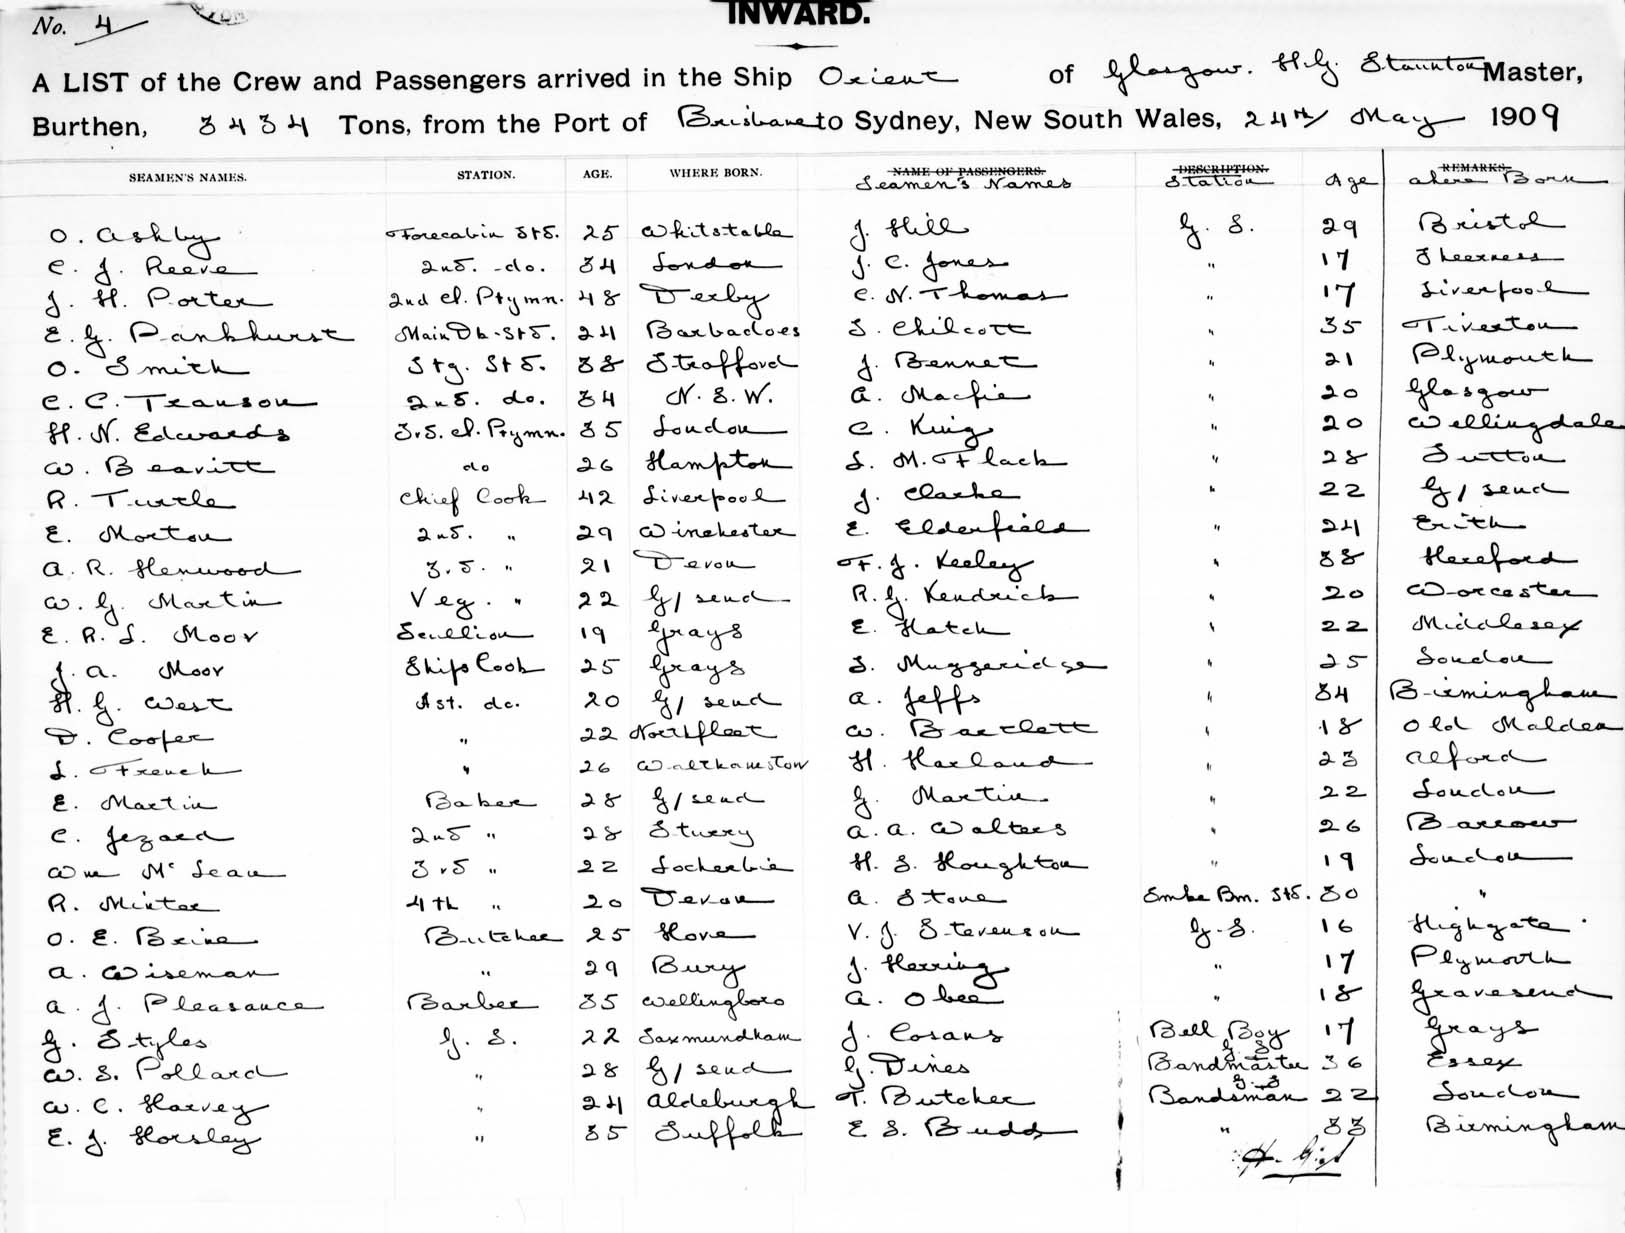 No. 4
INWARD.
A LIST of the Crew and Passengers arrived in the Ship Orient of Glasgow. H.G. Staunton Master,
Burthen, 3434 Tons, from the Port of Brisbane to Sydney, New South Wales, 24th May 1909
SEAMEN'S NAMES. STATION. AGE. WHERE BORN. NAME OF PASSENGERS. DESCRIPTION. REMARKS.
Seamen's Names Station Age where Born
O. Ashby Forecabin Std. 25 Whitstable J. Hill G. S. 29 Bristol
C. J. Reeve 2nd. do. 34 London J. C. Jones " 17 Sheerness
J. H. Porter 2nd Cl. Ptymn. 48 Derby C. N. Thomas " 17 Liverpool
E. G. Pankhurst Main Dk. Std. 24 Barbadoes S. Chilcott " 35 Tiverton
O. Smith Stg. Std. 38 Strafford J. Bennet " 21 Plymouth
C. C. Transon 2nd. do. 34 N. S. W. A. Macfie " 20 Glasgow
H. N. Edwards 3rd. Cl. Ptymn. 35 London C. King " 20 Wellingdale
W. Beavitt do 26 Hampton L. M. Flack " 28 Sutton
R. Turtle Chief Cook 42 Liverpool J. Clarke " 22 G/send
E. Morton 2nd. " 29 Winchester E. Elderfield " 24 Erith
A. R. Henwood 3rd. " 21 Devon F. J. Keeley " 38 Hereford
W. G. Martin Veg. " 22 G/send R. G. Kendrick " 20 Worcester
E. R. L. Moor Scullion 19 Grays E. Hatch " 22 Middlesex
J. A. Moor Ships Cook 25 Grays S. Muggeridge " 25 London
H. G. West Ast. do. 20 G/send A. Jeffs " 34 Birmingham
D. Cooper " 22 Northfleet W. Bartlett " 18 Old Malden
L. French " 26 Walthamstow H. Harland " 23 Alford
E. Martin Baker 28 G/send G. Martin " 22 London
C. Jezard 2nd " 28 Sturry A. A. Walters " 26 Barrow
Wm McLean 3rd " 22 Lockerbie H. S. Houghton " 19 London
R. Minter 4th " 20 Devon A. Stone Smke Rm. Std. 30 "
O. E. Brine Butcher 25 Hove V. J. Stevenson G. S. 16 Highgate
A. Wiseman " 29 Bury J. Herring " 17 Plymouth
A. J. Pleasance Barber 35 Wellingboro A. Obee " 18 Gravesend
G. Styles G. S. 22 Saxmundham J. Cosans Bell Boy 17 Grays
G S
W. S. Pollard " 28 G/send G. Dines Bandmaster 36 Essex
G. S
W. C. Harvey " 24 Aldeburgh T. Butcher Bandsman 22 London
E. J. Horsley " 35 Suffolk E S. Budd " 33 Birmingham